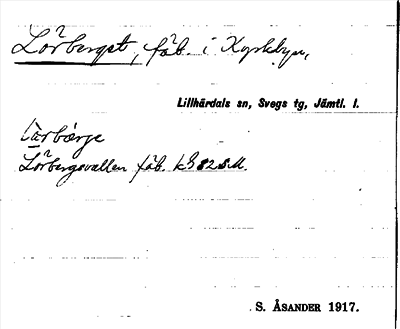 Lörberget, fäb. i Kyrkbyn,
Lillhärdals sn, Svegs tg, Jämtl. l.
Lörbergsvallen fäb. k 82 S.V.
S. ÅSANDER 1917.